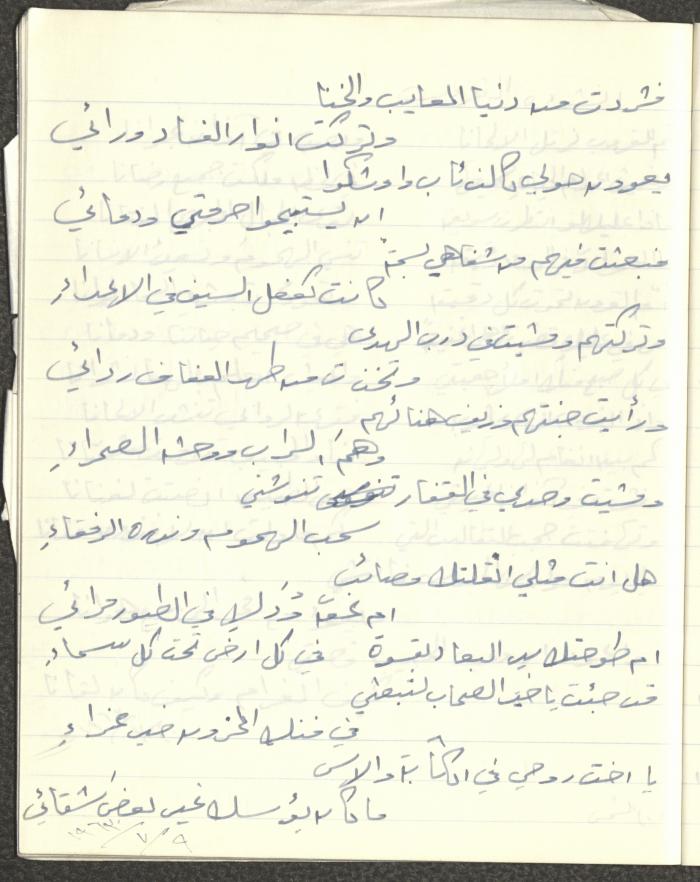 فشردت من دنيا المعايب والخنا
وتركت انوار الفساد ورائي
يعوون حولي كالذئاب واوشكوا
ان يستبيحوا حرمتي ودمائي
فبعثت فيهم من شفاهي بسمة
كانت كفعل السيف في الاعداءِ
وتركتهم ومشيت في درب الهدى
وتخذت من طهر العفاف ردائي
ورأيت جنتهم وزيف هنائهم
وهمَ السراب ووحشة الصحراءِ
ومشيت وحدي في القفار تنوشني
سحب الهموم وندرة الرفقاءِ
هل انت مثلي اثقلتك مصائب
ام عقّ وُدّك في الطيور مرائي
ام طوحتك يد البعاد بقسوة في كل ارض تحت كل سماءِ
قد جئت يا خير الصحاب لتبعثي
في فنك المحزون خير عزاءِ
يا اخت روحي في الكآبة والاسى
ما كان بؤسك غير بعض شقائي
٩/٧/١٩٦٣